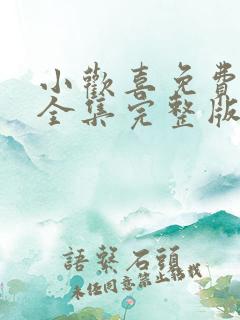 小歡喜免費
全集完整版
語繫石頭
未经同意禁止搭载